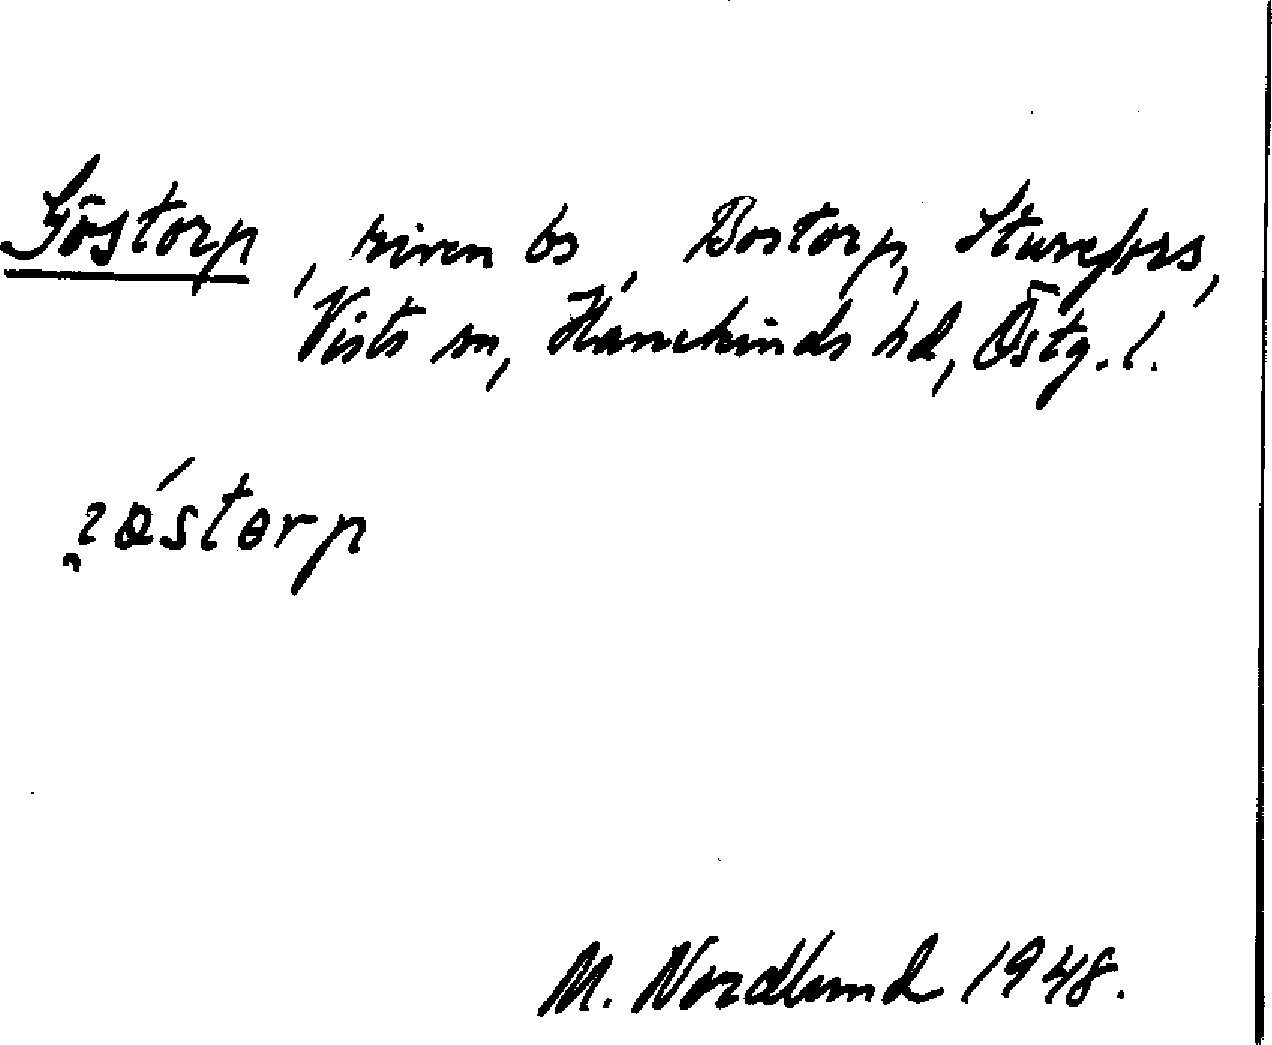 Göstorp, riven bs, Bostorp, Sturefors,
Vists sn, Hanekinds hd, Östg. l.
M. Nordlund 1948.